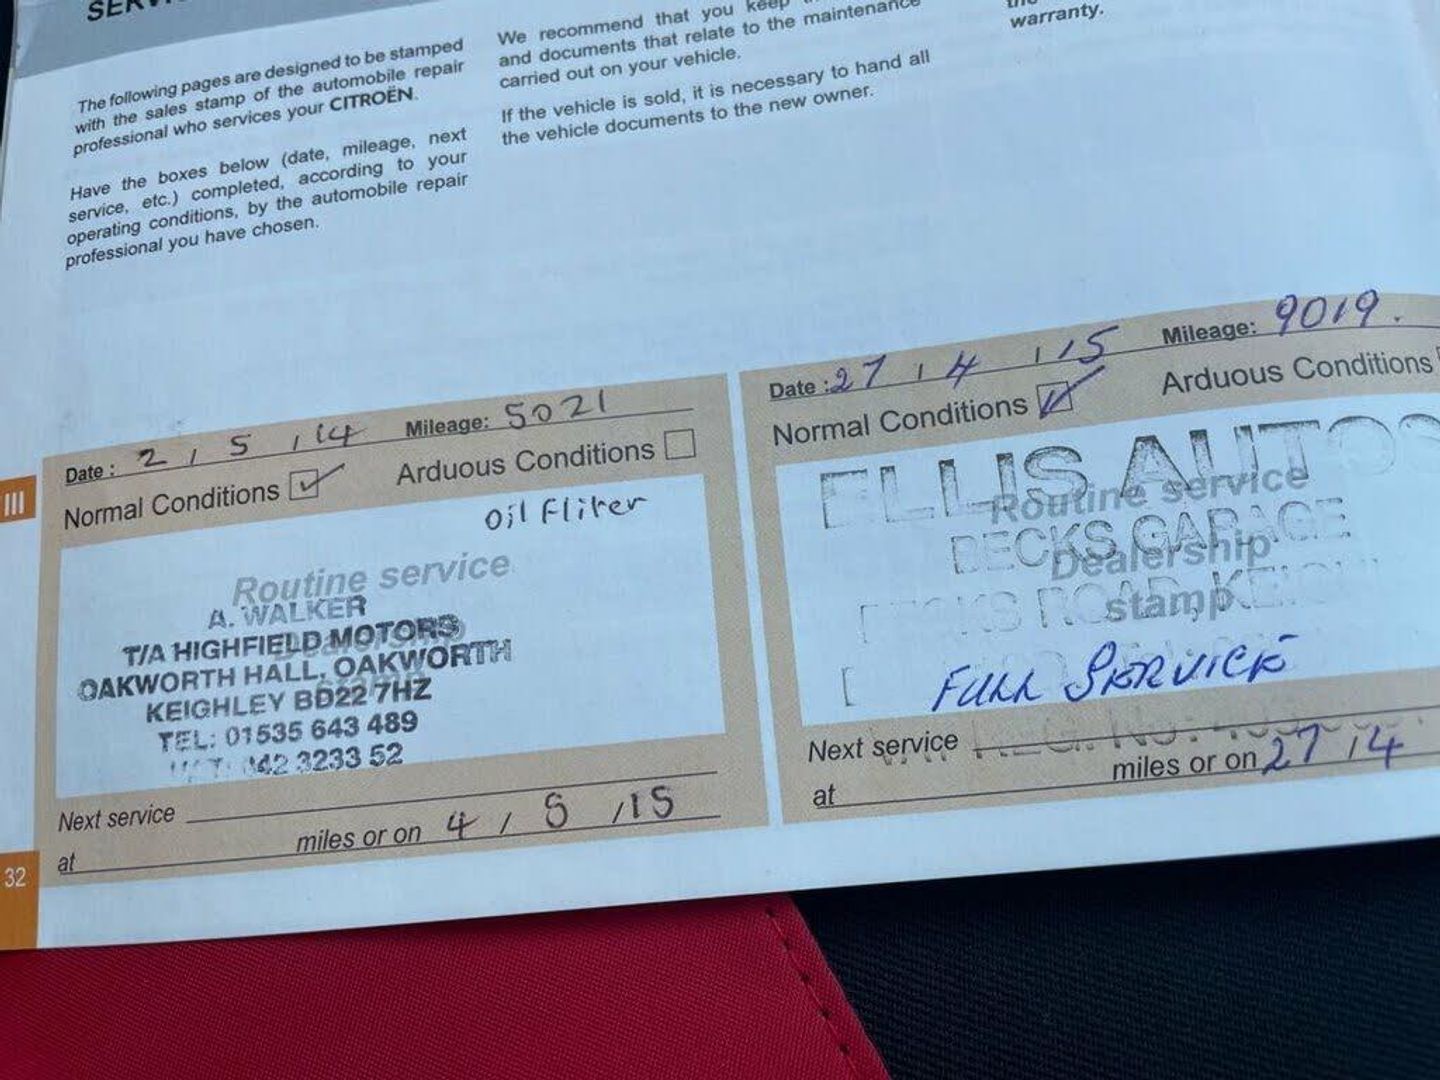 The following pages are designed to be stamped
with the sales stamp of the automobile repair
professional who services your CITROËN.
Have the boxes below (date, mileage, next
service, etc.) completed, according to your
operating conditions, by the automobile repair
professional you have chosen.
We recommend that you keep
and documents that relate to the maintenance
carried out on your vehicle.
If the vehicle is sold, it is necessary to hand all
the vehicle documents to the new owner.
warranty.
III
Date : 2 / 5 / 14 Mileage: 5021
Normal Conditions Arduous Conditions
Oil Fliter
Routine service
A. WALKER
T/A HIGHFIELD MOTORS
OAKWORTH HALL, OAKWORTH
KEIGHLEY BD22 7HZ
TEL: 01535 643 489
3233 52
Next service
at miles or on 4 / 5 / 15
Date : 27 / 4 / 15 Mileage: 9019.
Normal Conditions Arduous Conditions
ELLIS AUTOS
Routine service
BECKS GARAGE
Dealership
stamp
FULL SERVICE
Next service
at miles or on 27 / 4
32